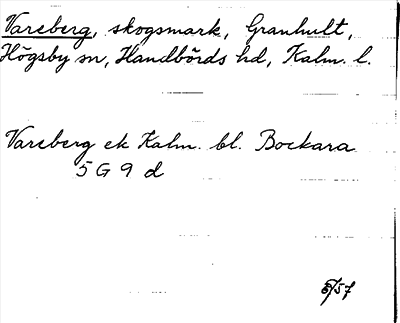 Vareberg, skogsmark, Granhult,
Högsby sn, Handbörds hd, Kalm. l.
Vareberg ek Kalm. bl. Bockara
5 G 9 d